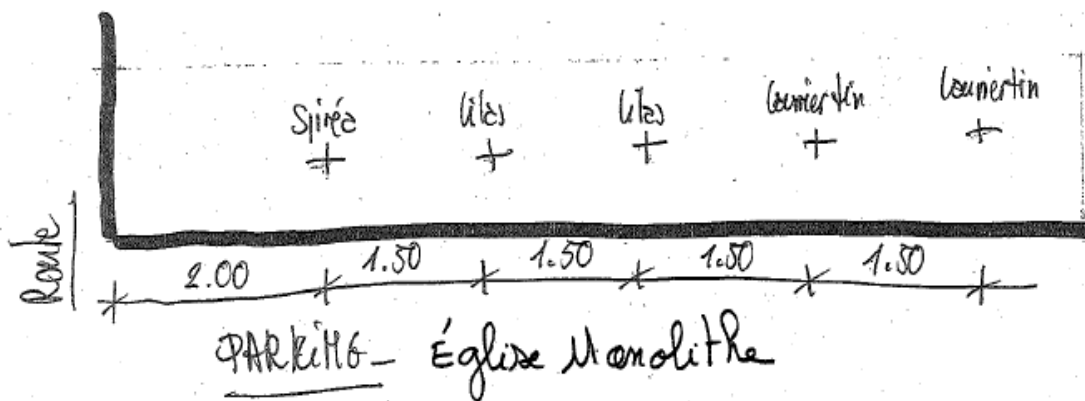 Spiréa Lilas Lilas Lauriertin Lauriertin
Route
2.00 1.50 1.50 1.50 1.50
PARKING_ Église Monolithe